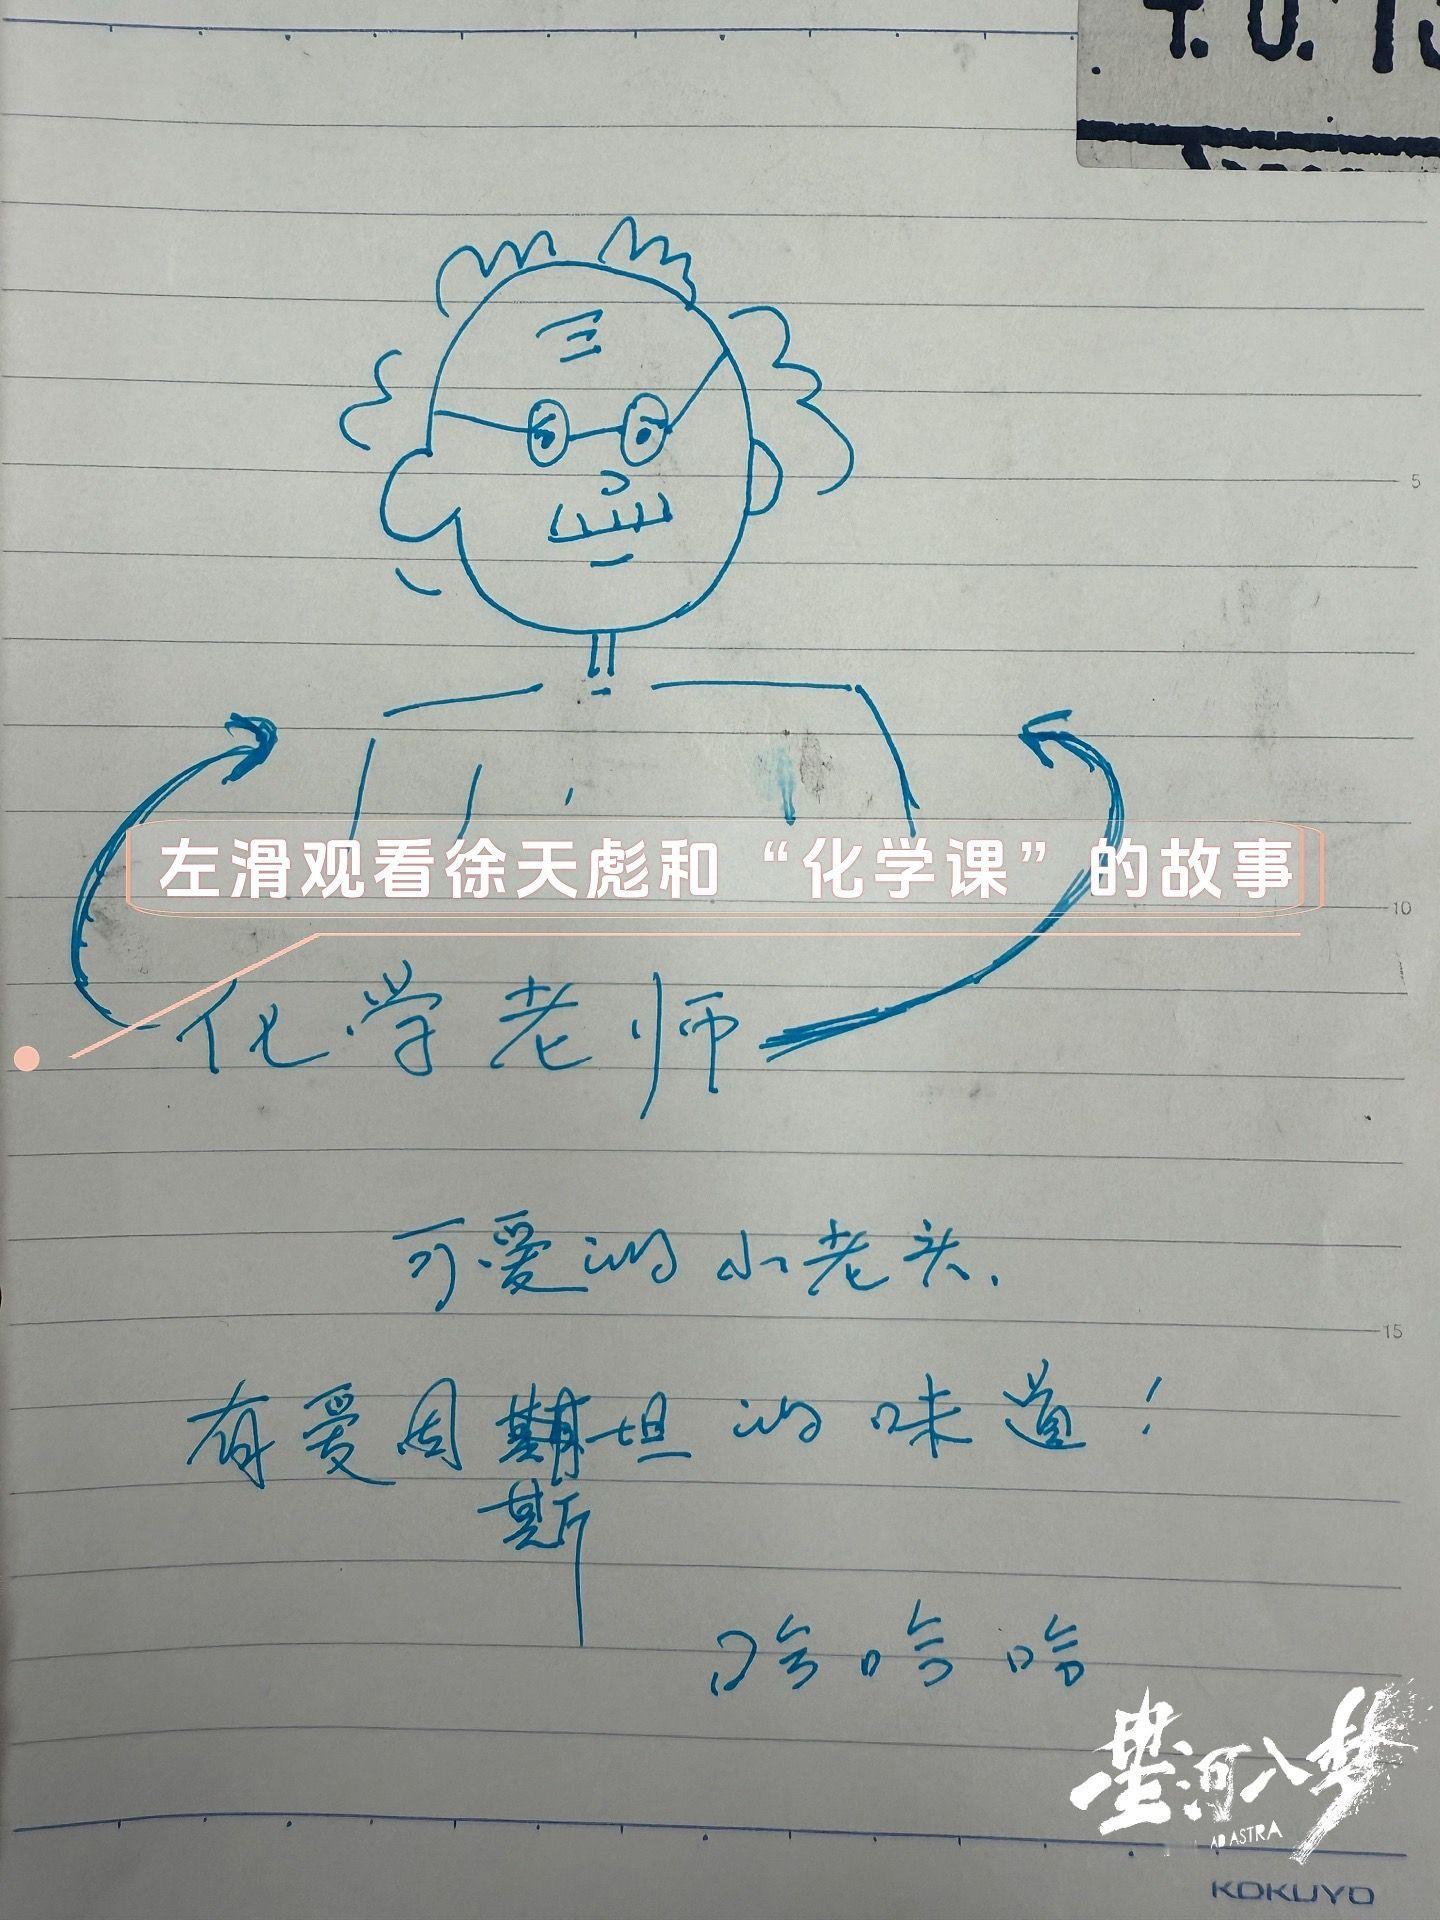 T.U.13
5
左滑观看徐天彪和“化学课”的故事
10
化学老师
可爱的小老头.
15
有爱因斯坦的味道!
斯
哈哈哈
星河入梦
AD ASTRA
KOKUYO